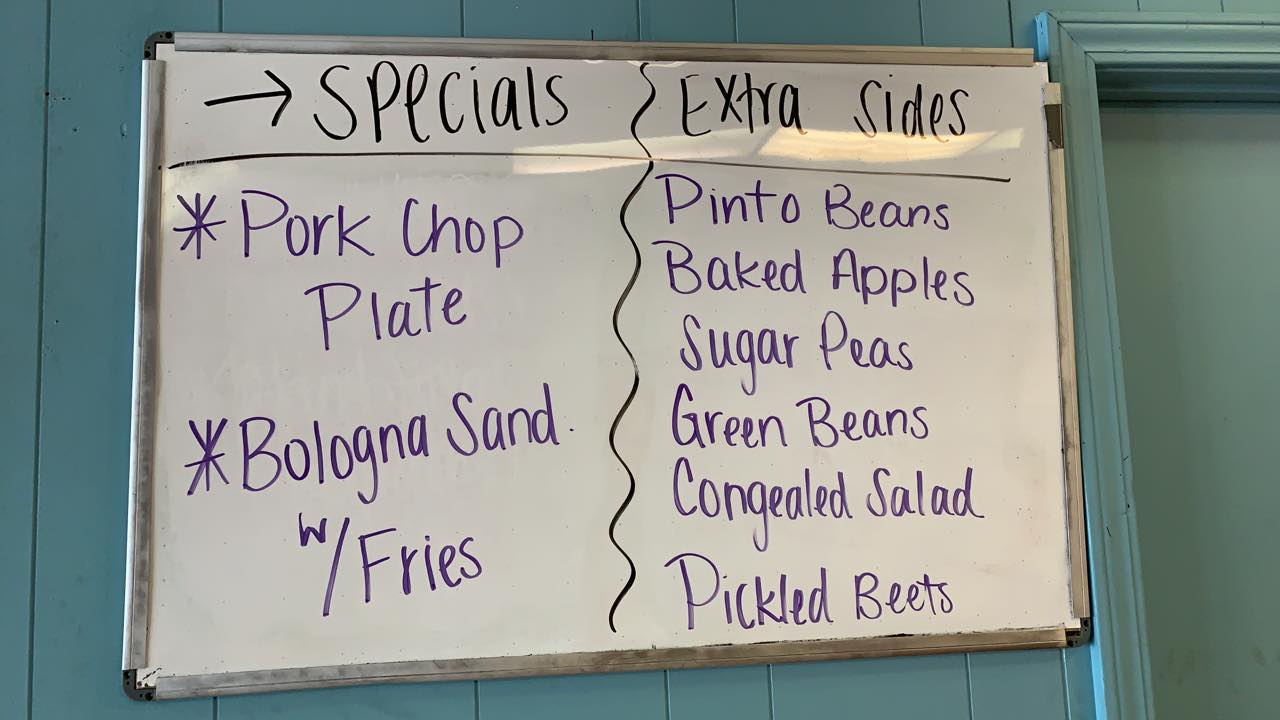 → Specials
* Pork Chop
Plate
* Bologna Sand.
w/Fries
Extra Sides
Pinto Beans
Baked Apples
Sugar Peas
Green Beans
Congealed Salad
Pickled Beets